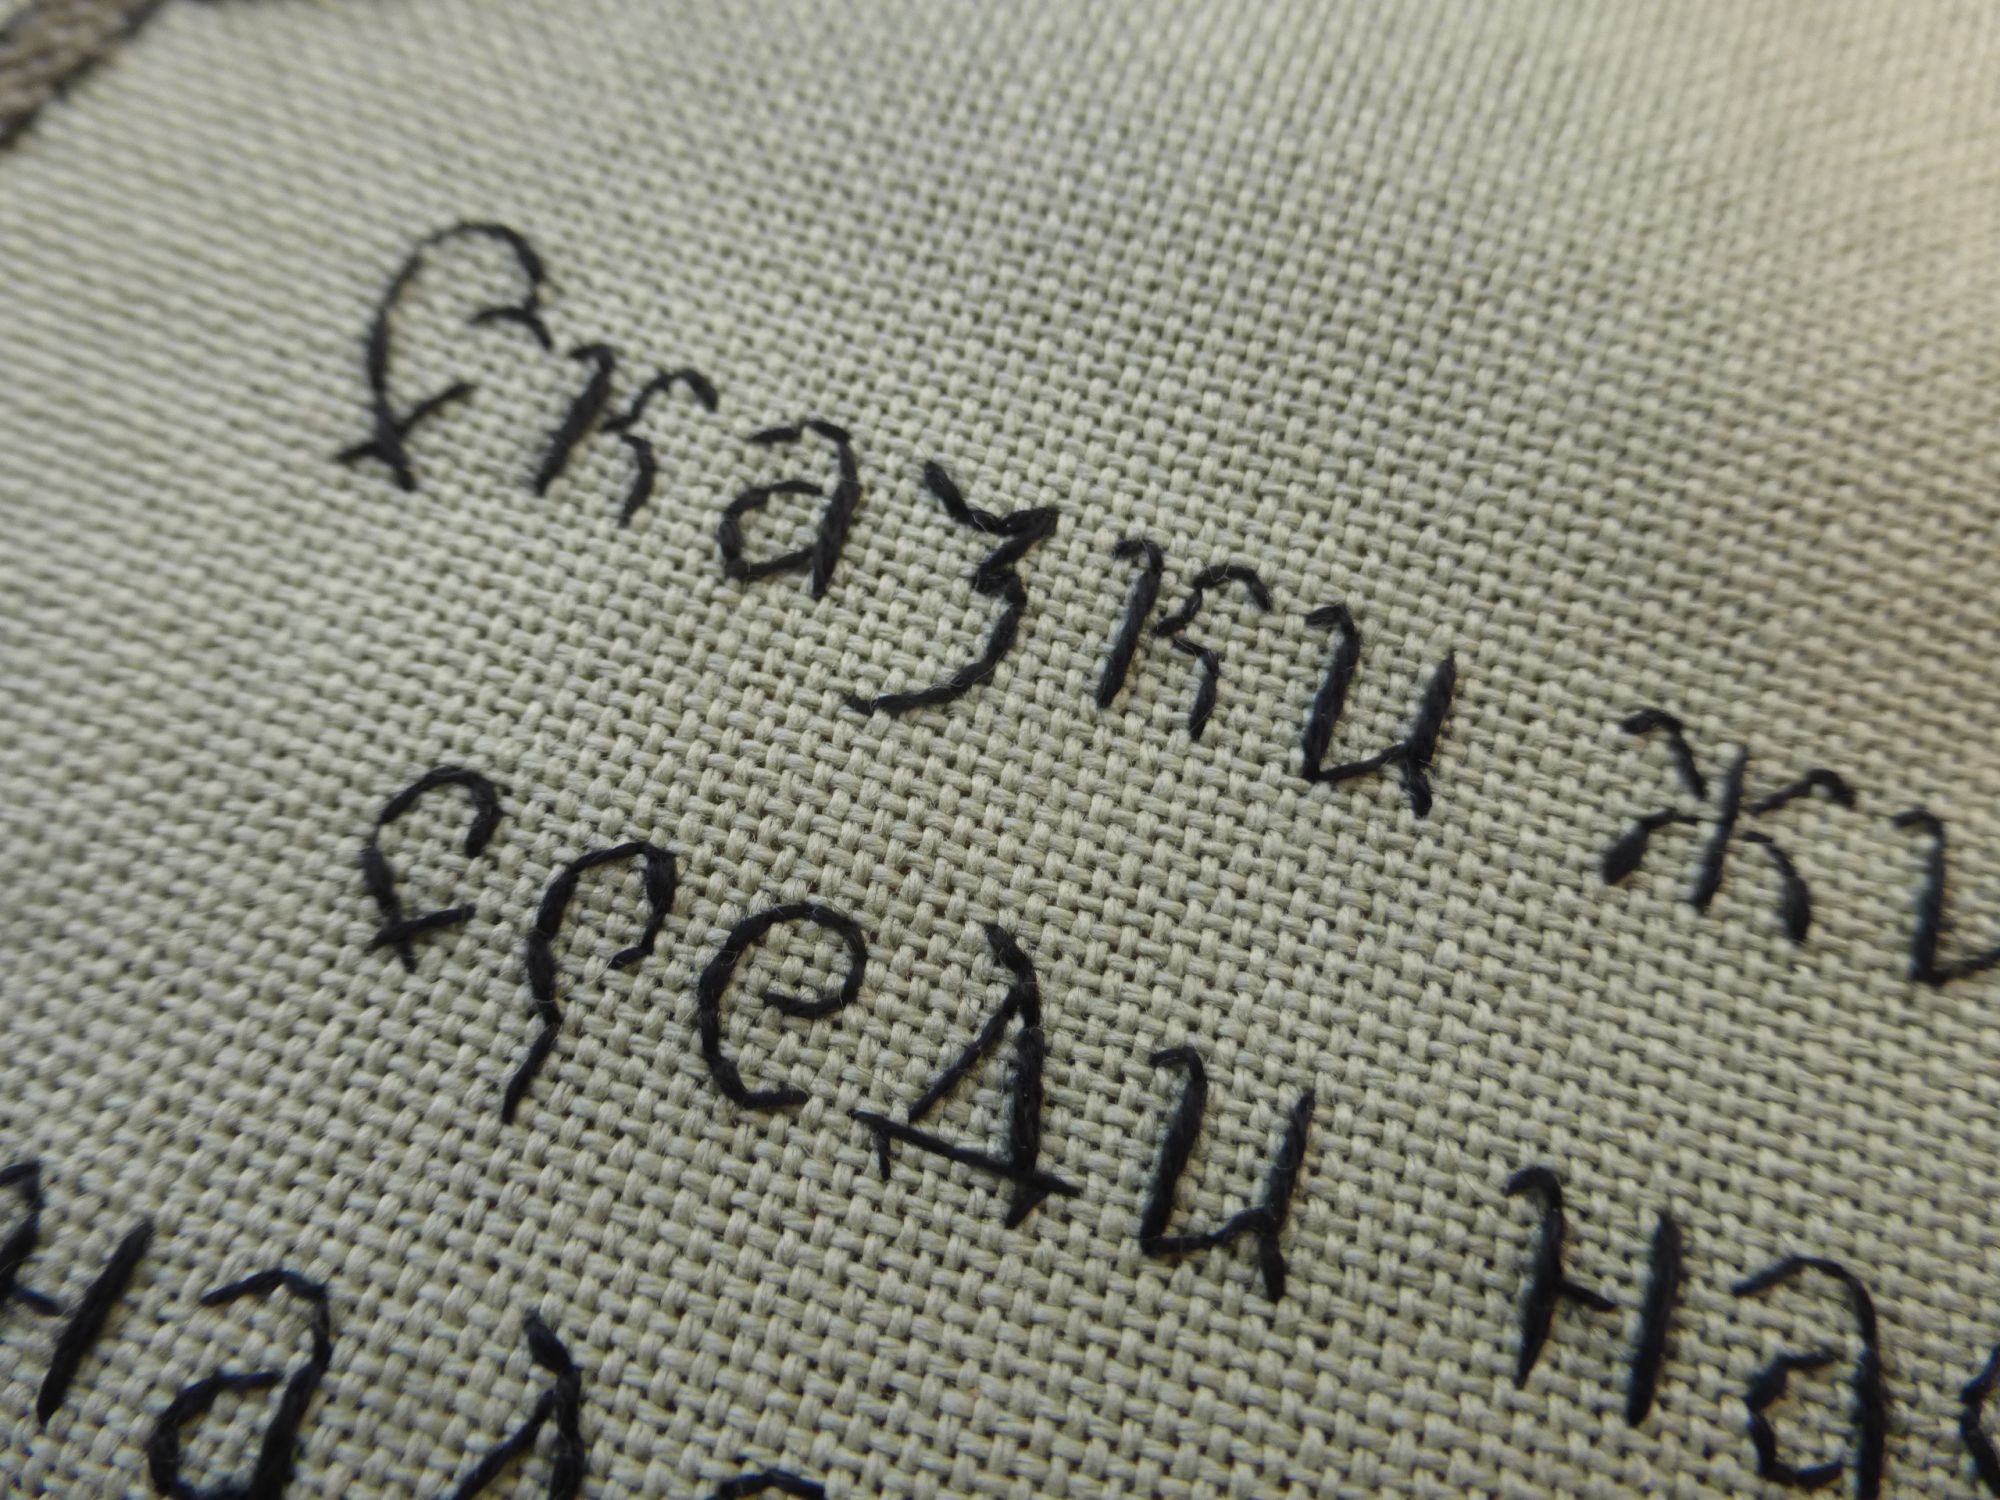 Сказки жи
среди нас
на